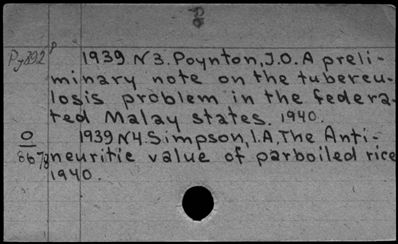 Py892
1939 N3. Poynton, J.O. A preli-
minary note on the tubercu-
losis problem in the federa-
ted Malay states. 1940.
1939 N4. Simpson, I.A, The Anti-
neuritic value of parboiled rice
1940.